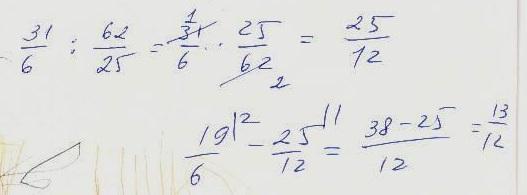 31/6 : 62/25 = 31 1/6 · 25/62 2 = 25/12
19/6 |2 - 25/12 |1 = 38-25/12 = 13/12